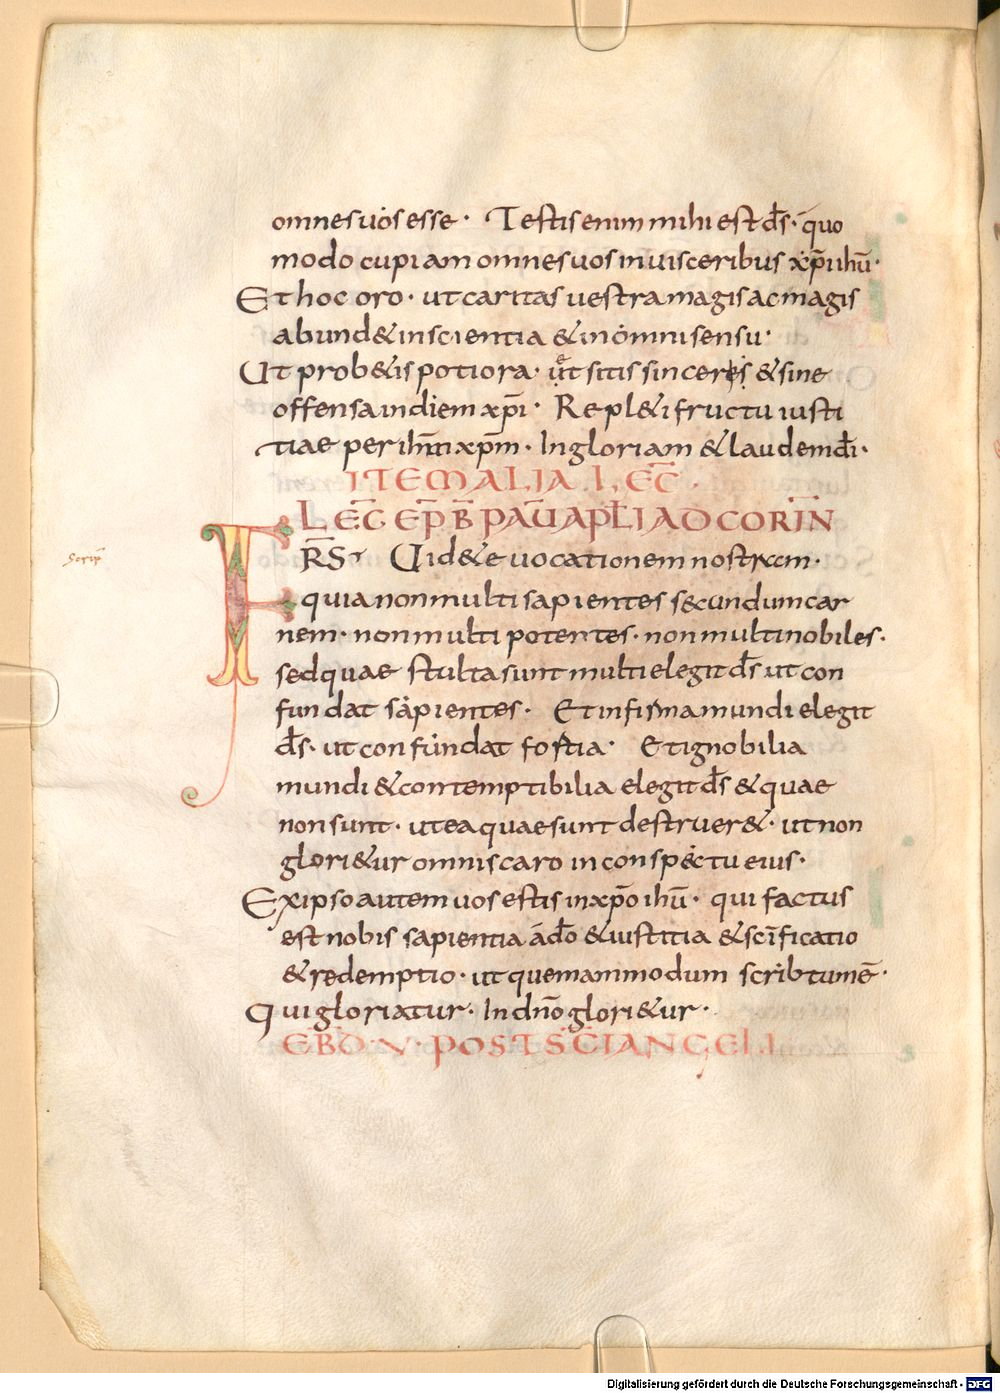 omnes uos esse · Testis enim mihi est d̄s · quo
modo cupiam omnes uos in uisceribus xp̄i ihū ·
Et hoc oro · ut caritas uestra magis ac magis
abund& in scientia & in omni sensu ·
Ut prob&is potiora · ut sitis sinceres & sine
offensa in diem xp̄i · Repl&i fructu iusti
tiae per ihm̄ xp̄m · In gloriam & laudem d̄i ·
ITEM ALIA LEC̄ ·
LEC̄ EP̄ B̄ PAUĪ APL̄I AD CORIN̄
FR̄S Uid&e uocationem nostram ·
scrip̄
quia non multi sapientes secundum car
nem · non multi potentes · non multi nobiles ·
sed quae stulta sunt mundi elegit d̄s ut con
fundat sapientes · Et infirma mundi elegit
d̄s · ut confundat fortia · Et ignobilia
mundi & contemptibilia elegit d̄s & quae
non sunt · ut ea quae sunt destruer& · ut non
glori&ur omnis caro in conspectu eius ·
Ex ipso autem uos estis in xp̄o ihū · qui factus
est nobis sapientia a d̄o & iustitia & sc̄ificatio
& redemptio · ut quemammodum scribtum ē ·
Qui gloriatur · In dn̄o glori&ur ·
EBD̄ · V · POST SC̄I ANGELI
Digitalisierung gefördert durch die Deutsche Forschungsgemeinschaft - DFG